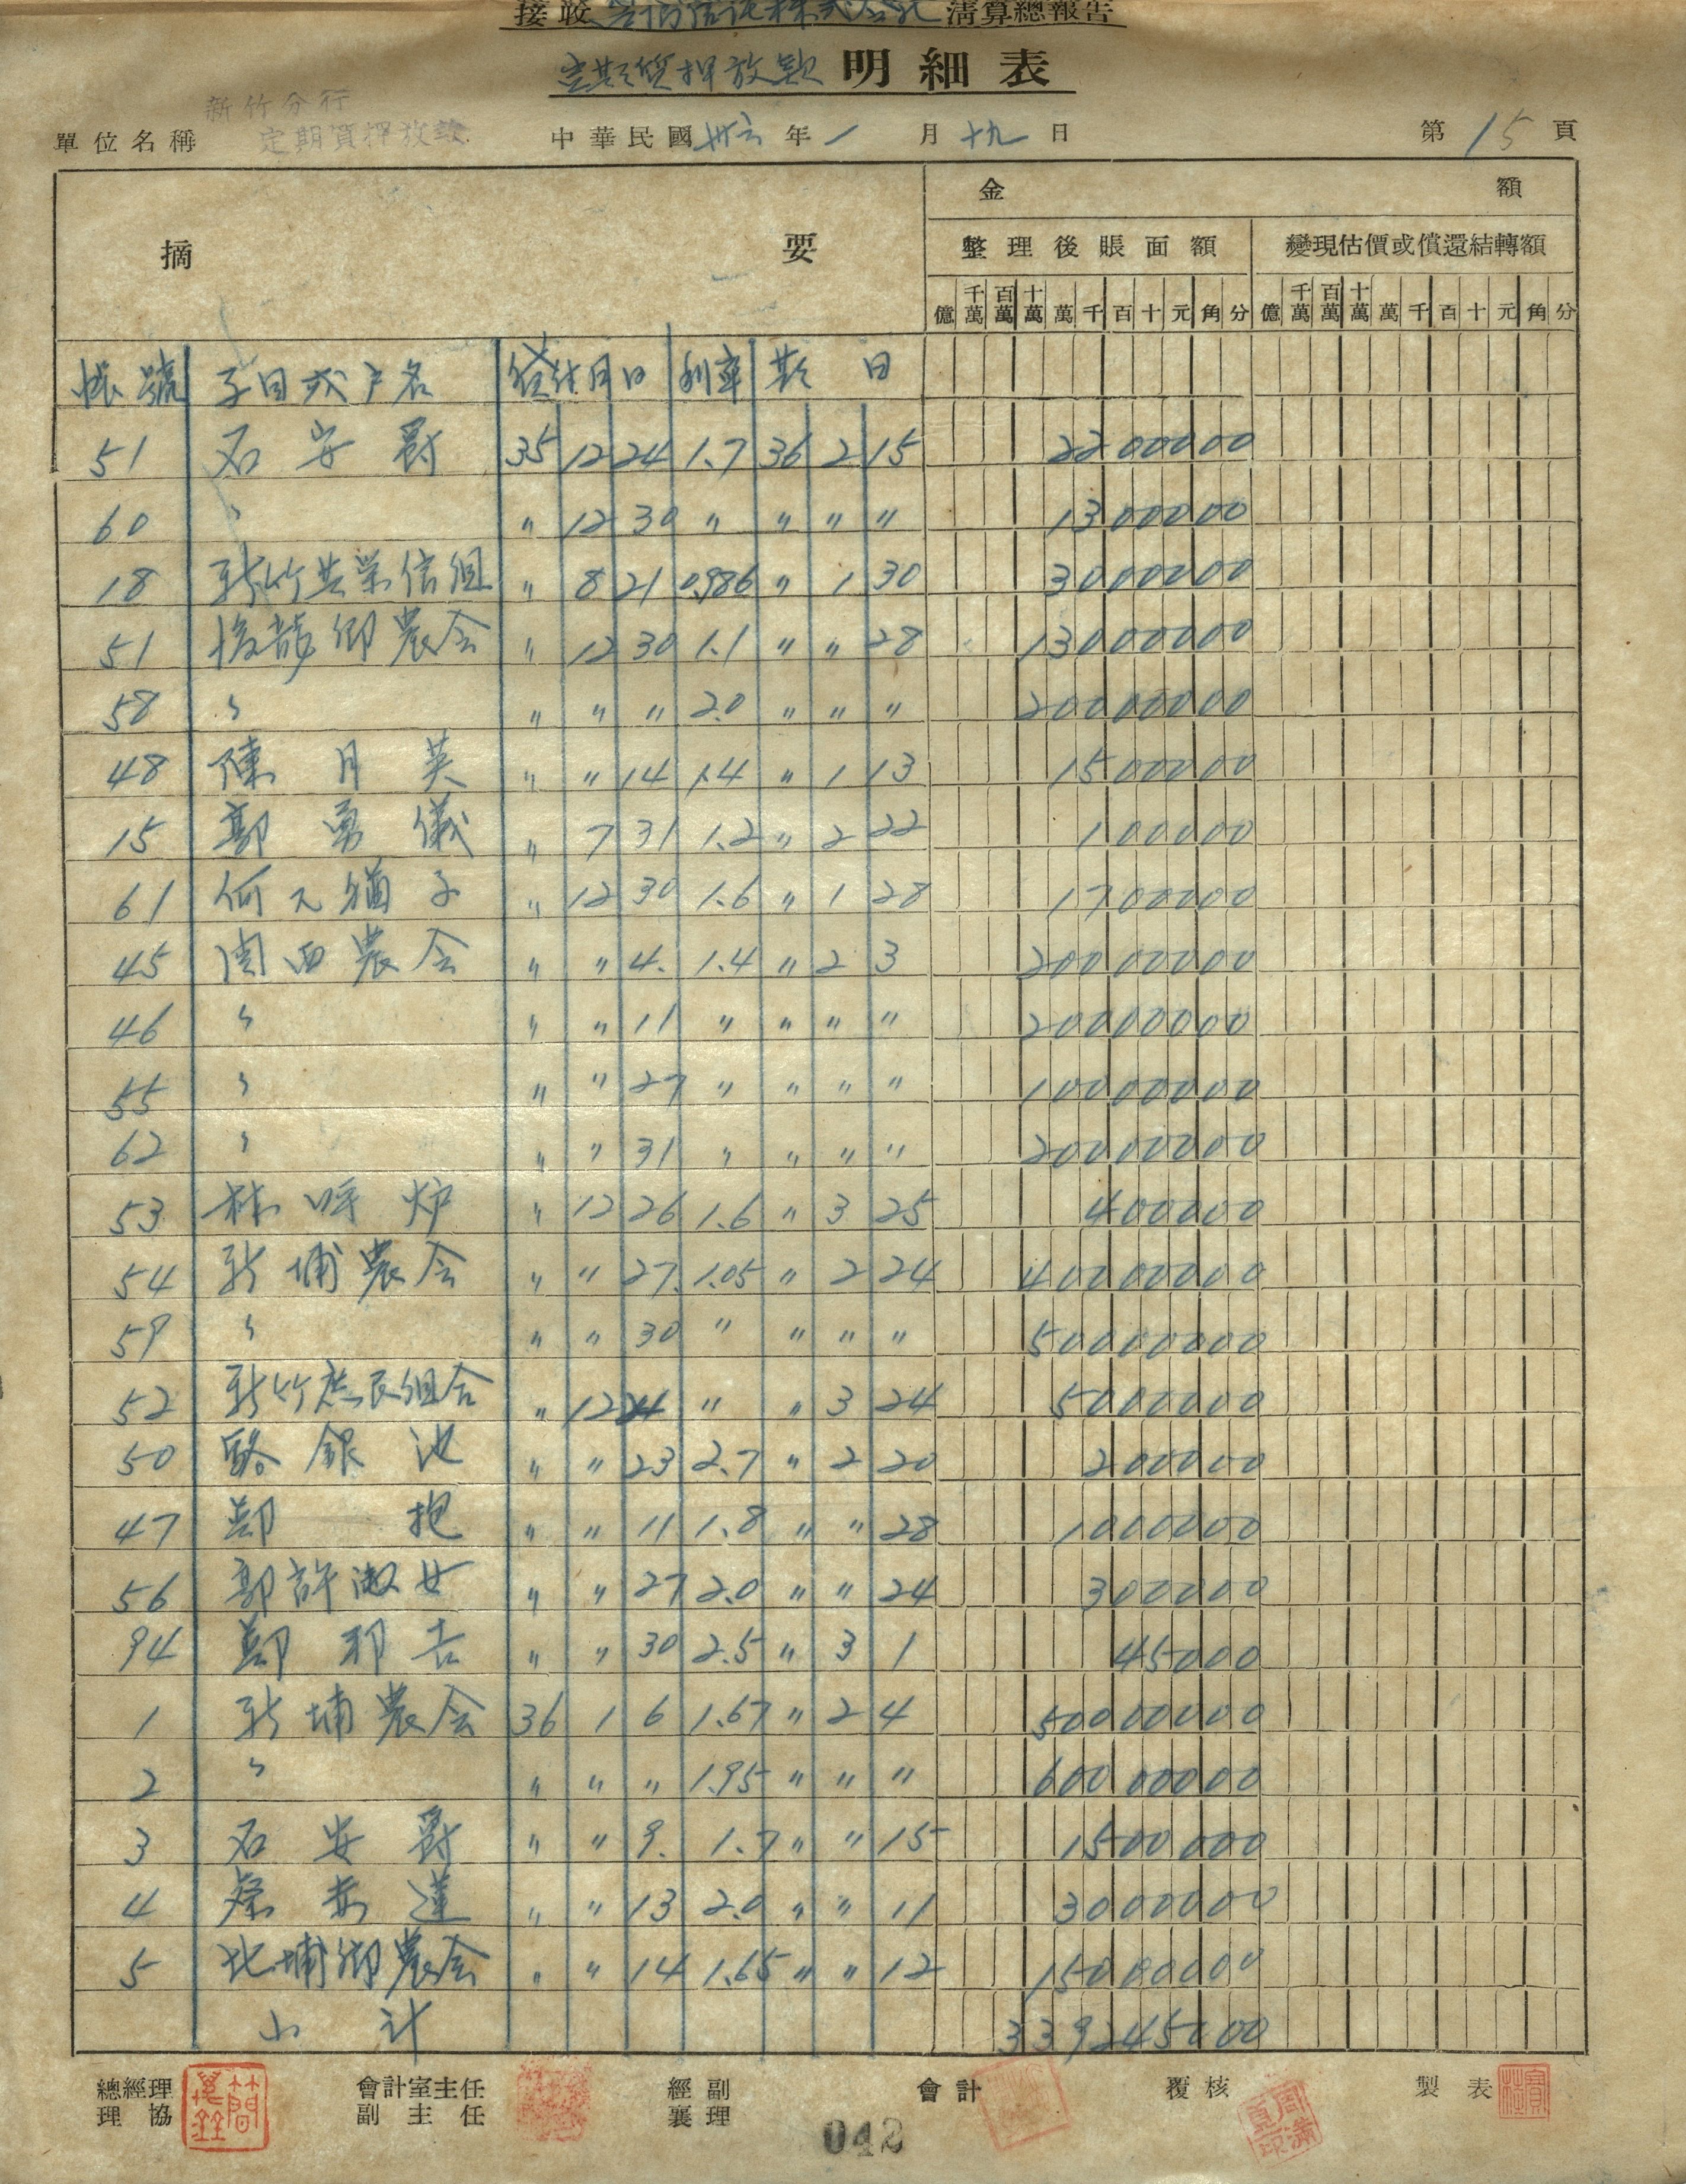 接收台灣信託株式会社清算總報告
定期質押放款明細表
新竹分行
定期質押放款
單位名稱 中華民國卅六年1月十九日 第15頁
摘要 金額
整理後賬面額 變現估價或償還結轉額
億 千萬 百萬 十萬 萬 千 百 十 元 角 分 億 千萬 百萬 十萬 萬 千 百 十 元 角 分
帳號 子目或户名 貸付月日 利率 期日
51 石安爵 35 12 24 1.7 36 2 15 2200000
60 〃 〃 12 30 〃 〃 〃 〃 1300000
18 新竹共榮信組 〃 8 21 0.986 〃 1 30 3000000
51 後龍鄉農会 〃 12 30 1.1 〃 〃 28 13000000
58 〃 〃 〃 〃 2.0 〃 〃 〃 20000000
48 陳月英 〃 〃 14 1.4 〃 1 13 1500000
15 鄭勇儀 〃 7 31 1.2 〃 2 22 100000
61 何 子 〃 12 30 1.6 〃 1 28 1700000
45 関西農会 〃 〃 4. 1.4 〃 2 3 20000000
46 〃 〃 〃 11 〃 〃 〃 〃 20000000
55 〃 〃 〃 27 〃 〃 〃 〃 10000000
62 〃 〃 〃 31 〃 〃 〃 〃 20000000
53 林呼炉 〃 12 26 1.6 〃 3 25 400000
54 新埔農会 〃 〃 27. 1.05 〃 2 24 40000000
59 〃 〃 〃 30 〃 〃 〃 〃 50000000
52 新竹庶民組合 〃 12 24 〃 〃 3 24 5000000
50 駱銀池 〃 〃 23 2.7 〃 2 20 200000
47 鄭抱 〃 〃 11 1.8 〃 〃 28 1000000
56 郭許淑女 〃 〃 27 2.0 〃 〃 24 300000
94 鄭邦吉 〃 〃 30 2.5 〃 3 1 45000
1 新埔農会 36 1 6 1.67 〃 2 4 50000000
2 〃 〃 〃 〃 1.95 〃 〃 〃 60000000
3 石安爵 〃 〃 9. 1.7 〃 〃 15 1500000
4 蔡赤蓮 〃 〃 13 2.0 〃 〃 11 3000000
5 北埔鄉農会 〃 〃 14 1.65 〃 〃 12 15000000
小計 339245000
總經理 會計室主任 經副 會計 覆核 製表
理協 副主任 襄理
042